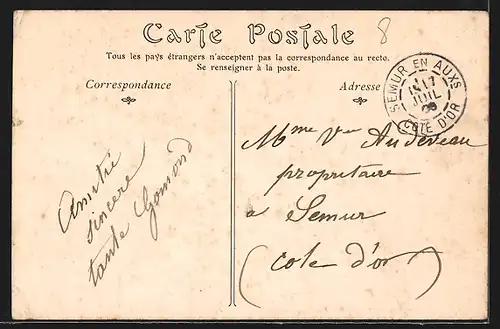 Carte Postale
8
Tous les pays étrangers n'acceptent pas la correspondance au recto.
Se renseigner à la poste.
Correspondance
Adresse
SEMUR EN AUXS
JUIL
COTE D'OR
Amitié
sincere
tante
Mme Vve Audeveau
propritaire
a Semur
(cote d'or)